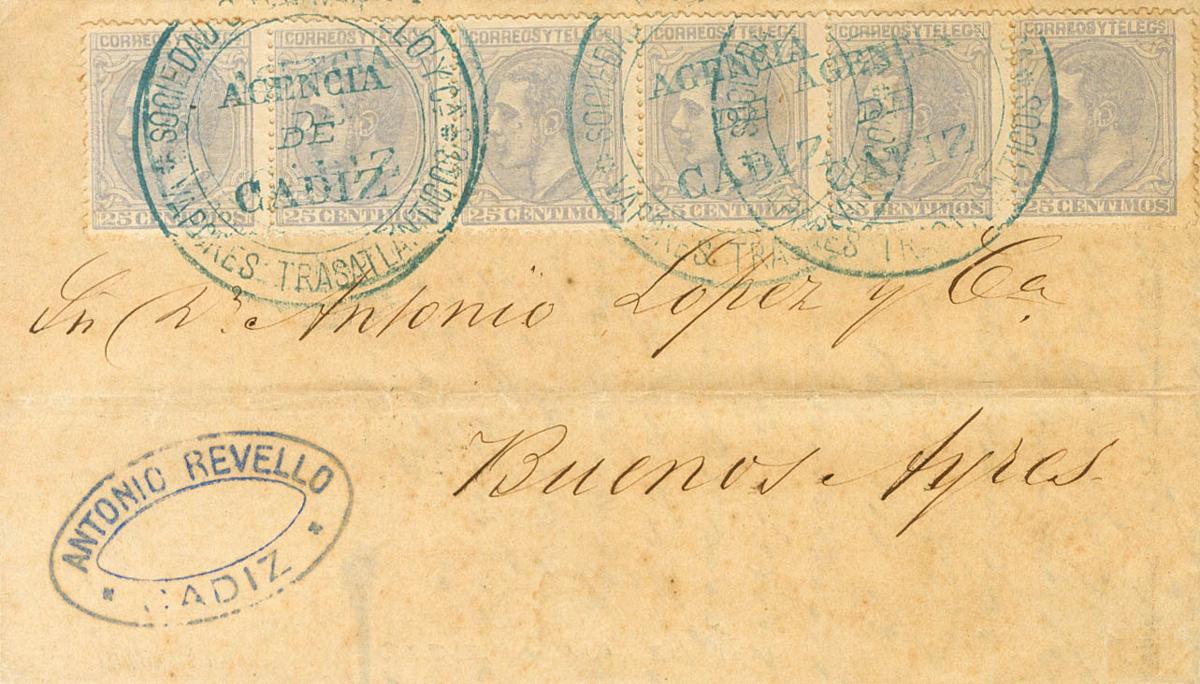 CORREOS Y TELEGS CORREOS Y TELEGS CORREOS Y TELEGS CORREOS Y TELEGS CORREOS Y TELEGS CORREOS Y TELEGS
25 CENTIMOS 25 CENTIMOS 25 CENTIMOS 25 CENTIMOS 25 CENTIMOS 25 CENTIMOS
SOCIEDAD
LO Y CA
VAPORES TRASATLANTICOS
AGENCIA
DE
CADIZ
SOCIEDAD
VAPORES TRA
AGENCIA
DE
CADIZ
AGENCIA
DE
CADIZ
VAPORES TRA
TICOS
Antonio Lopez y Ca.
Buenos Ayres.
ANTONIO REVELLO
CADIZ